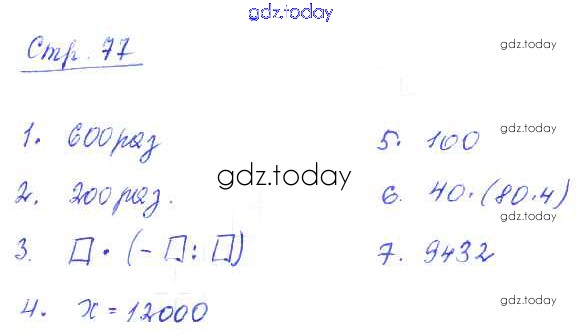 gdz.today
Стр. 77
gdz.today
1. 600 раз
2. 200 раз.
3. □ · (- □ : □)
4. x = 12000
gdz.today
5. 100
gdz.today
6. 40 · (80 · 4)
gdz.today
7. 9432
gdz.today
gdz.today